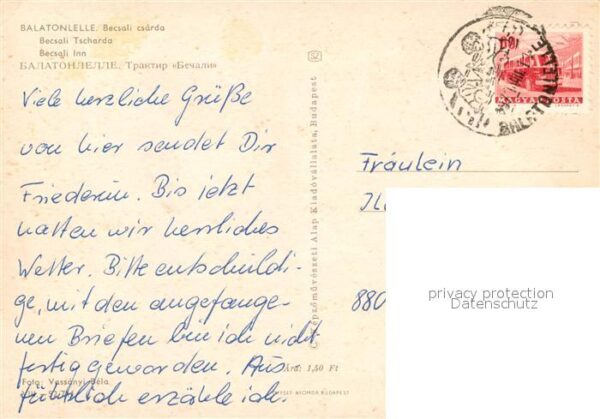 BALATONLELLE. Becsali csárda
Becsali Tscharda
Becsali Inn
БАЛАТОНЛЕЛЛЕ. Трактир «Бечали»
Viele herzliche Grüße
von hier sendet Dir
Friederun. Bis jetzt
hatten wir herrliches
Wetter. Bitte entschuldi-
ge, mit den angefange-
nen Briefen bin ich nicht
fertig geworden. Aus
führlich erzähle ich.
Foto: Vassányi Béla
Ára: 1,50 Ft
OFFSET-NYOMDA BUDAPEST
© Képzőművészeti Alap Kiadóvállalata, Budapest
MAGYAR POSTA
BALATONLELLE
Fräulein
880
privacy protection
Datenschutz